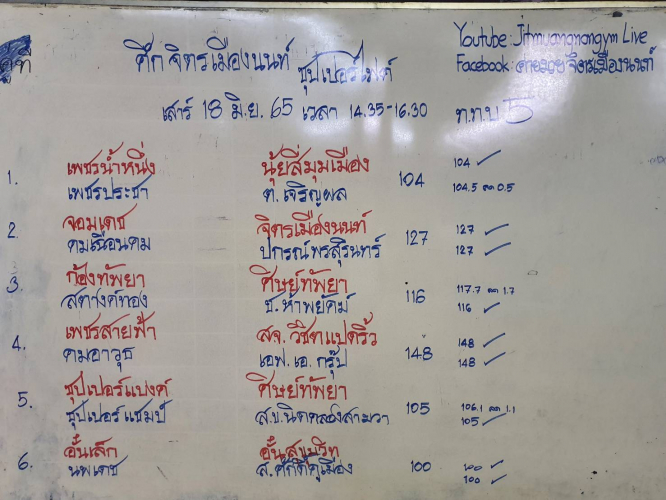 Youtube: Jitmuangnongym Live
ศึกจิตรเมืองนนท์ ซุปเปอร์ไฟต์
Facebook: ค่ายมวย จิตรเมืองนนท์
คู่ที่
เสาร์ 18 มิ.ย. 65 เวลา 14.35-16.30 ท.ท.บ 5
1. เพชรน้ำหนึ่ง นุ้ยสี่มุมเมือง 104 ✓
เพชรประชา ต.เจริญผล 104 104.5 ลด 0.5
2. จอมเดช จิตรเมืองนนท์ 127 ✓
คมเฉือนคม ปกรณ์พรสุรินทร์ 127 127 ✓
3. ก้องทัพยา ศิษย์ทัพยา 117.7 ลด 1.7
สตางค์ทอง ช.ห้าพยัคฆ์ 116 116 ✓
4. เพชรสายฟ้า สจ.วิชิตแปดริ้ว 148 ✓
คมอาวุธ เอฟ.เอ.กรุ๊ป 148 148 ✓
5. ซุปเปอร์แบงค์ ศิษย์ทัพยา 106.1 ลด 1.1
ซุปเปอร์แชมป์ ส.ข.นิดคลองสามวา 105 105 ✓
6. อั๋นเล็ก 100 ✓
นพเดช ส.ศักดิ์คูเมือง 100 100 ✓